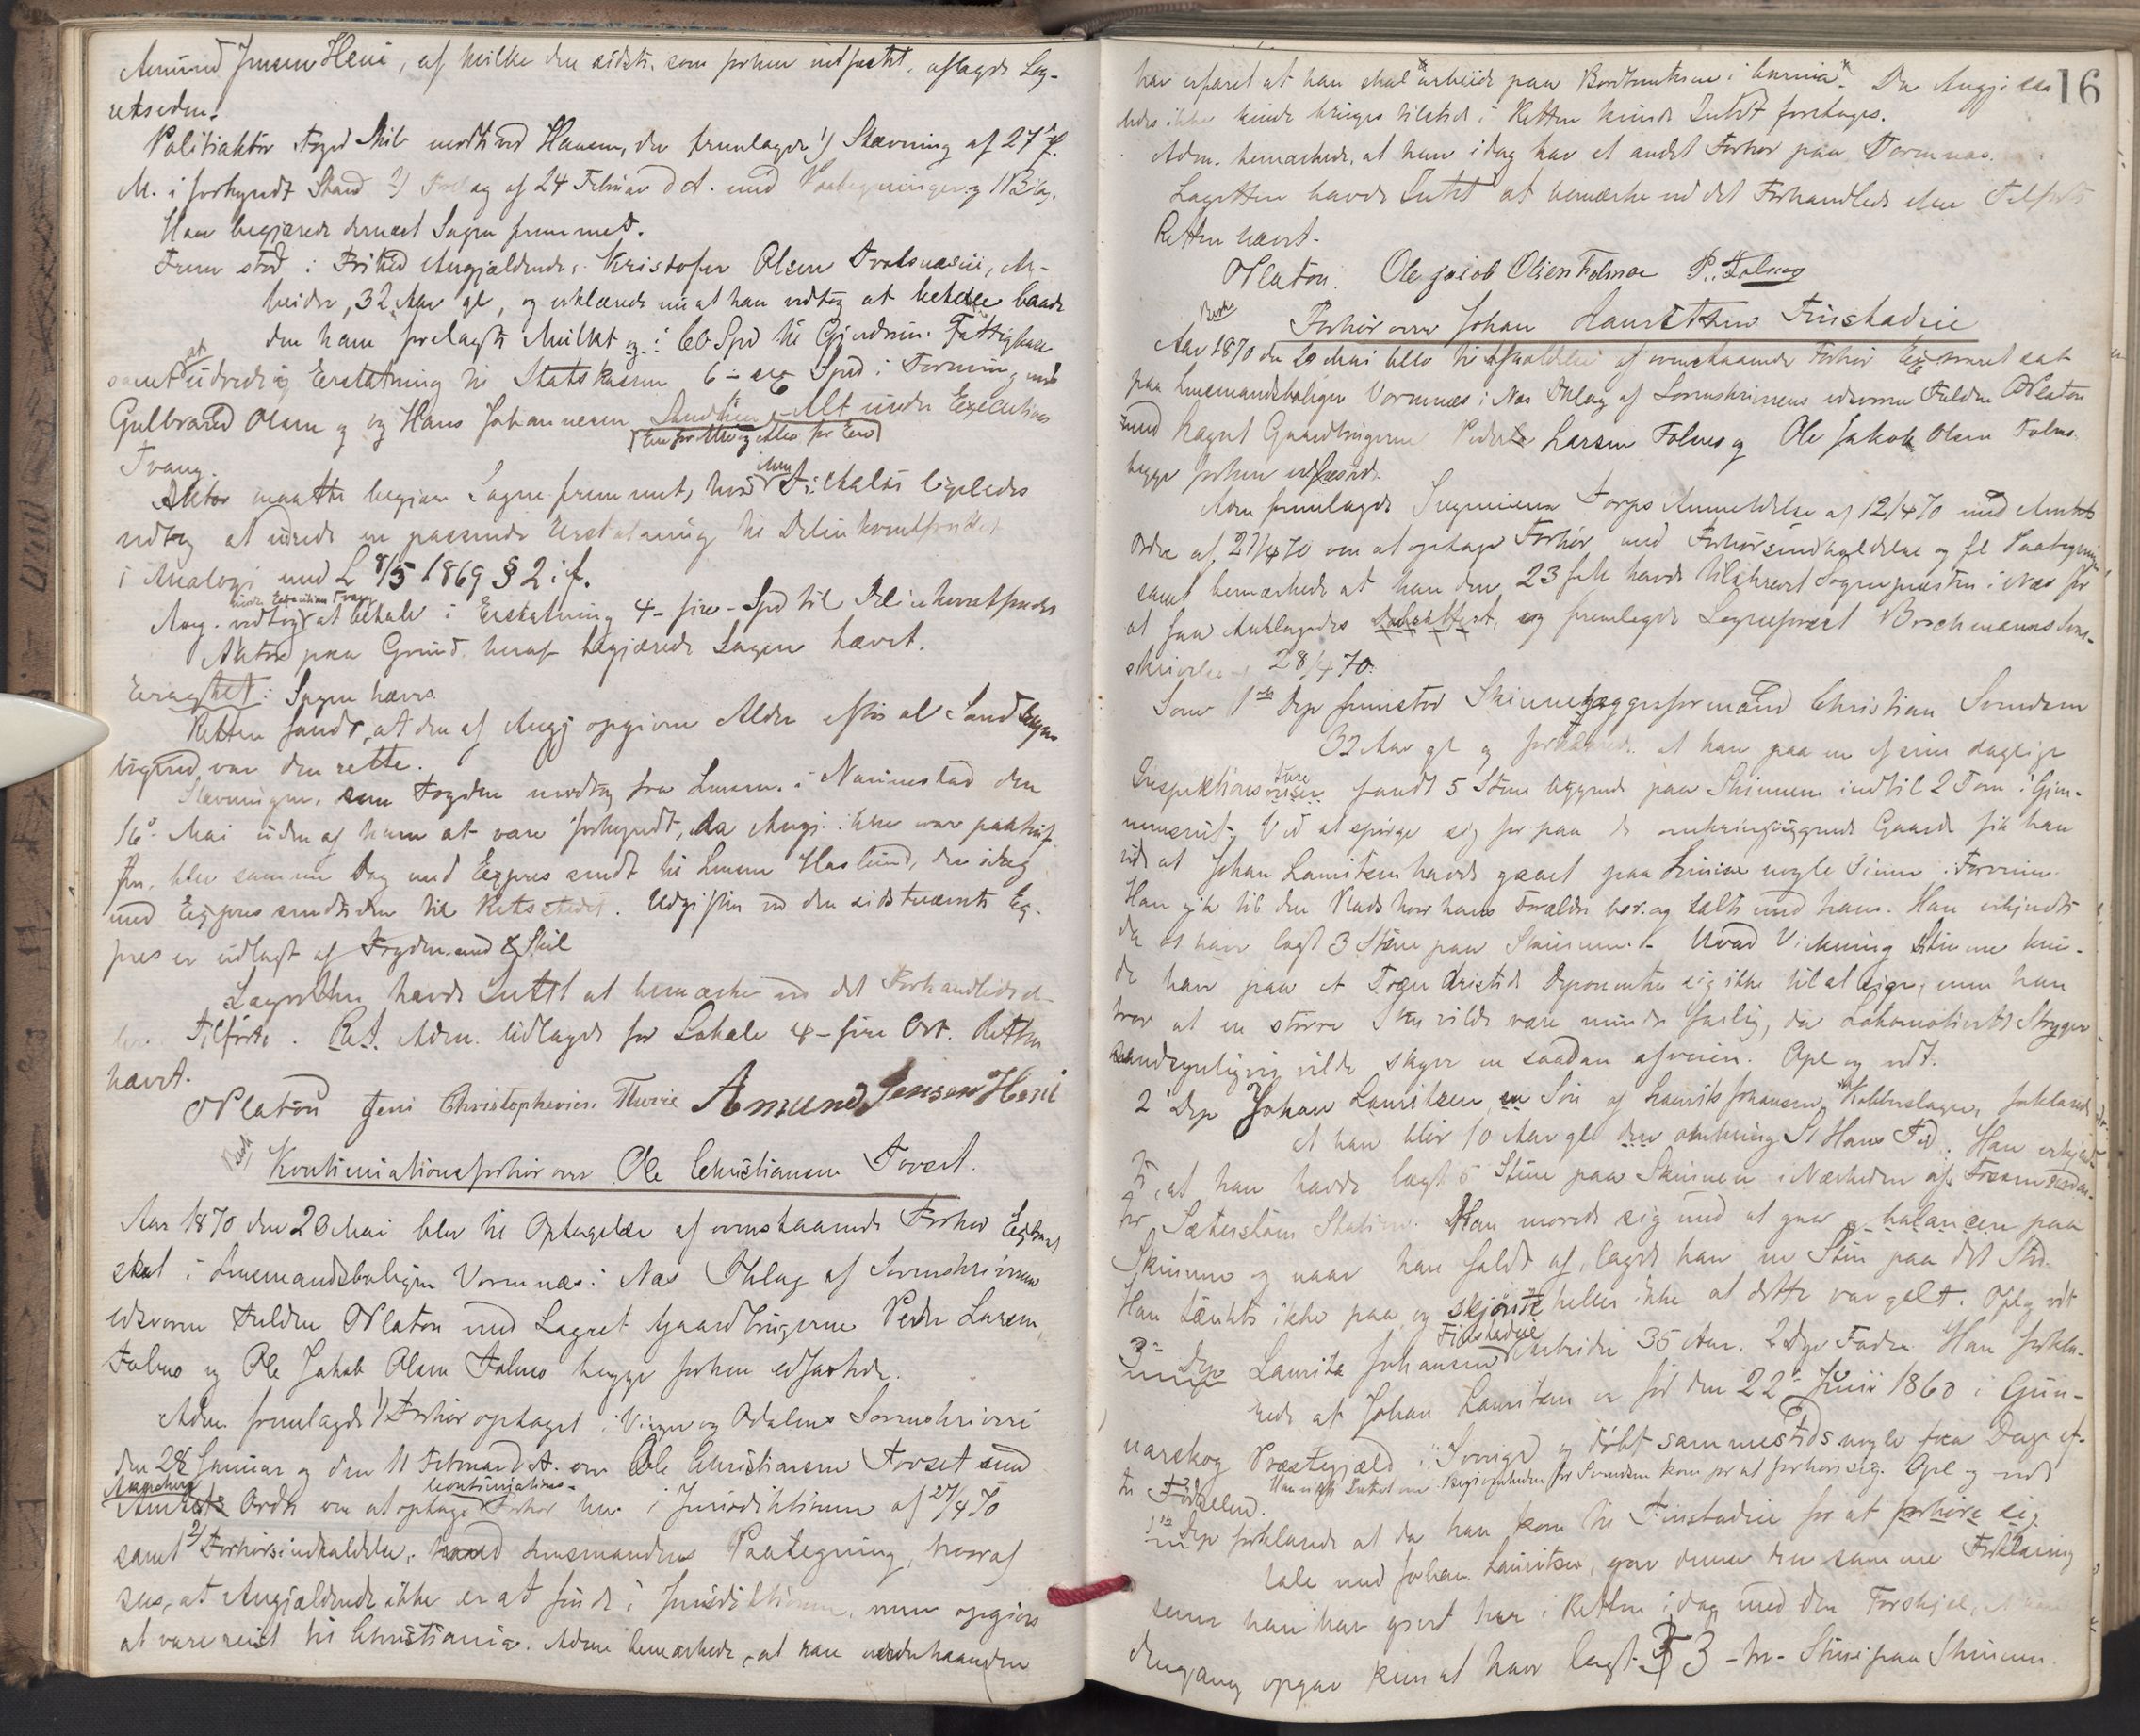 Amund Jensen Heni, af hvilke den sidste, som forhen edfæstet, aflagde Lag-
retseden.
Politiaktor Foged mødte ved Hansen, der fremlagde 1) Stævning af 27 f.
M. i forkyndt Stand 2) Forelæg af 24 Februar d A. med Paategninger og 11 Bilag.
Han begjærede dernæst Sagen fremmet.
Frem stod i Frihed Angjældende: Kristofer Olsen Ar-
beider, 32 Aar gl, og erklærede nu at han vedtog at betale baade
den ham forelagte Mulkt og i 66 Spd til Gjerdrum Fattigkasse
samt at udrede i Erstatning til Statskassen 6 - sex Spd i Forening med
Gulbrand Olsen og og Hans Johannesen - Alt under Executions
(En for Alle og Alle for Een)
Tvang.
Aktor maatte begjære Sagen fremmet, hvis ikke ligeledes
vedtog at udrede en passende Erstatning til Delinkventfondet
i Analogi med L 8/5 1869 § 2 i.f.
under Execution Tvang
Ang. vedtog at betale i Erstatning 4 - fire - Spd til Delinkventfondet
Aktor paa Grund heraf begjærede Sagen hævet.
Eragtet: Sagen hæves.
Retten fandt, at den af Angj opgivne Alder efter al Sandsyn-
lighed var den rette.
Stævningen, som Fogden modtog fra Lensm. i Nannestad den
16de Mai uden af ham at være forkyndt, da Angj. ikke var paatruf-
fen, blev samme Dag med Expres sendt til Lensm Haslund, der idag
med Expres sendte den til Retsstedet. Udgiften ved den sidstnævnte Ex-
pres er udlagt af Fogden med
Lagretten havde Intet at bemærke ved det Forhandlede el-
ler Tilførte. Adm. udlagde for Lokale 4 - fire Ort. Retten
hævet.
OPlatou Jens Christophersen Amund Jensen Heni
Kontinuationsforhør over Ole Christiansen Tovset.
Aar 1870 den 20 Mai blev til Optagelse af ovenstaaende Forhør Extraret
sat i Lensmandsboligen Vormnæs i Næs Thlag af Sorenskriverens
edsvorne Fuldm OPlatou med Lagret Gaardbrugerne Peder Larsen
Folmo og Ole Jakob Olsen Folmo begge forhen edfæstede.
Adm. fremlagde 1) Forhør optaget i Vinger og Odalens Sorenskriveri
den 28 Januar og den 11 Februar d A. over Ole Christiansen Tovset med
Amtets Ordre om at optage kontinuations- Forhør her i Jurisdiktionen af 27/4 70
samt 2) Forhørsindkaldelse, med Lensmandens Paategning, hvoraf
sees, at Angjældende ikke er at finde i Jurisdiktionen, men opgives
at være reist til Christiania. Adm bemærkede, at han underhaanden
16
har erfaret at han skal "arbeide paa Bordtomterne i Xania". Da Angj. saa
ledes ikke kunde bringes tilstede i Retten kunde Intet foretages.
Adm. bemærkede, at han idag har et andet Forhør paa Vormnæs.
Lagretten havde Intet at bemærke ved det Forhandlede eller Tilførte
Retten hævet.
OPlatou. Ole Jacob Olsen Folmoe P. Folmo
Forhør over Johan Lauritzen Finstadeie
Aar 1870 den 20 Mai blev til Afholdelse af ovenstaaende Forhør Extraret sat
paa Lensmandsboligen Vormnæs i Næs Thlag af Sorenskriverens edsvorne Fuldm OPlatou
med Lagret Gaardbrugerne Peder Larsen Folmo og Ole Jakob Olsen Folmo
begge forhen edfæstede.
Adm fremlagde Ingeniør Torps Anmeldelse af 12/4 70 med Amtets
Ordre af 27/4 70 om at optage Forhør med Forhørsindkaldelse og fl Paategninger,
samt bemærkede at han den 23 havde tilskrevet Sognepræsten i Næs for
at faa Anklagedes Daabsattest, og fremlagde Sognepræst Brochmanns Svar-
skrivelse 28/4 70.
Som 1ste Dep fremstod Skinnelæggerformand Christian Svendsen
32 Aar gl og forklarede at han paa en af sine daglige
Inspektionsture fandt 5 Stene liggende paa Skinnen indtil 2 Tom i Gjen-
nemsnit. Ved at spørge sig for paa de omkringliggende Gaarde fik han
vide at Johan Lauritzen havde gaaet paa Linien nogle Timer i Forveien.
Han gik til den Plads hvor hans Forældre bor og talte med ham. Han erkjendte
da at have lagt 3 Stene paa Skinnen. Hvad Virkning Stenene kun-
de have paa et Træn dristede Deponenten sig ikke til at sige, men han
tror at en større Sten vilde være mindre farlig, da Lokomotivets Stryger
sandsynligvis vilde skyve en saadan af veien. Opl og vdt.
2 Dep Johan Lauritzen en Søn af Laurits Johansen, forklarede
at han blir 10 Aar gl den omkring St Hans Tid. Han erkjend-
te, at han havde lagt 5 Stene paa Skinnen i Nærheden af
for Sæterstøen Station. Han morede sig med at gaae og balancere paa
Skinnen og naar han faldt af, lagde han en Sten paa det Sted.
Han tænkte ikke paa og skjønte heller ikke at dette var galt. Opl og vdt
3die Dep Laurits Johansen Finstadeie arbeider 35 Aar. 2 Dep Fader. Han forkla-
rede at Johan Lauritzen er fød den 22de Juni 1860 i Gun-
narskog Præstegjæld i Sverige og døbt sammesteds nogle faa Dage ef-
ter Fødselen. Han vidste Intet om Begivenheden før Svendsen kom for at forhøre sig. Opl og vdt
1ste Dep forklarede at da han kom til Finstadeie for at forhøre sig
tale med Johan Lauritsen, gav denne den samme Forklaring
som han har givet her i Retten idag med den Forskjel, at han
dengang opgav kun at have lagt 3 - tre - Stene paa Skinnen.